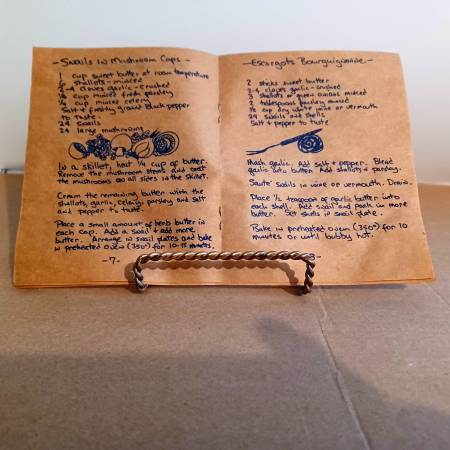 - Snails in Mushroom Caps -
1 cup sweet butter at room temperature
shallots - minced
cloves garlic - crushed
cup minced fresh parsley
cup minced celery
Salt + freshly ground black pepper
to taste
24 Snails
24 large mushrooms
In a skillet, heat 1/4 cup of butter.
Remove the mushroom stems and coat
the mushrooms on all sides in the skillet.
Cream the remaining butter with the
shallots, garlic, celery, parsley and salt
and pepper to taste.
Place a small amount of herb butter in
each cap. Add a snail + add more
butter. Arrange in snail plates and bake
in preheated oven (350°) for 10-15 minutes.
-7-
- Escargots Bourguignonne -
2 sticks sweet butter
cloves garlic - crushed
shallots or green onions minced
2 tablespoons parsley minced
cup dry white wine or vermouth
24 snails and shells
Salt + pepper to taste
Mash garlic. Add salt + pepper. Blend
garlic into butter. Add shallots + parsley.
Sauté snails in wine or vermouth. Drain.
Place 1/2 teaspoon of garlic butter into
each shell. Add snail and pack in more
butter. Set shells in snail plate.
Bake in preheated oven (350°) for 10
minutes or until bubbly hot.